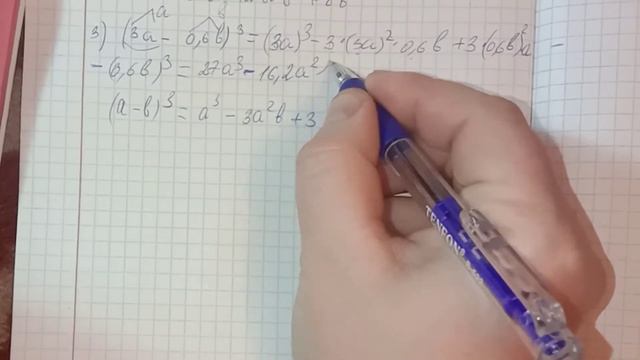 a в
3) (3a - 0,6в)³ = (3a)³ - 3·(3a)²·0,6в + 3·(0,6в)²a -
- (0,6в)³ = 27a³ - 16,2a²
(a-в)³ = a³ - 3a²в + 3
TENFON